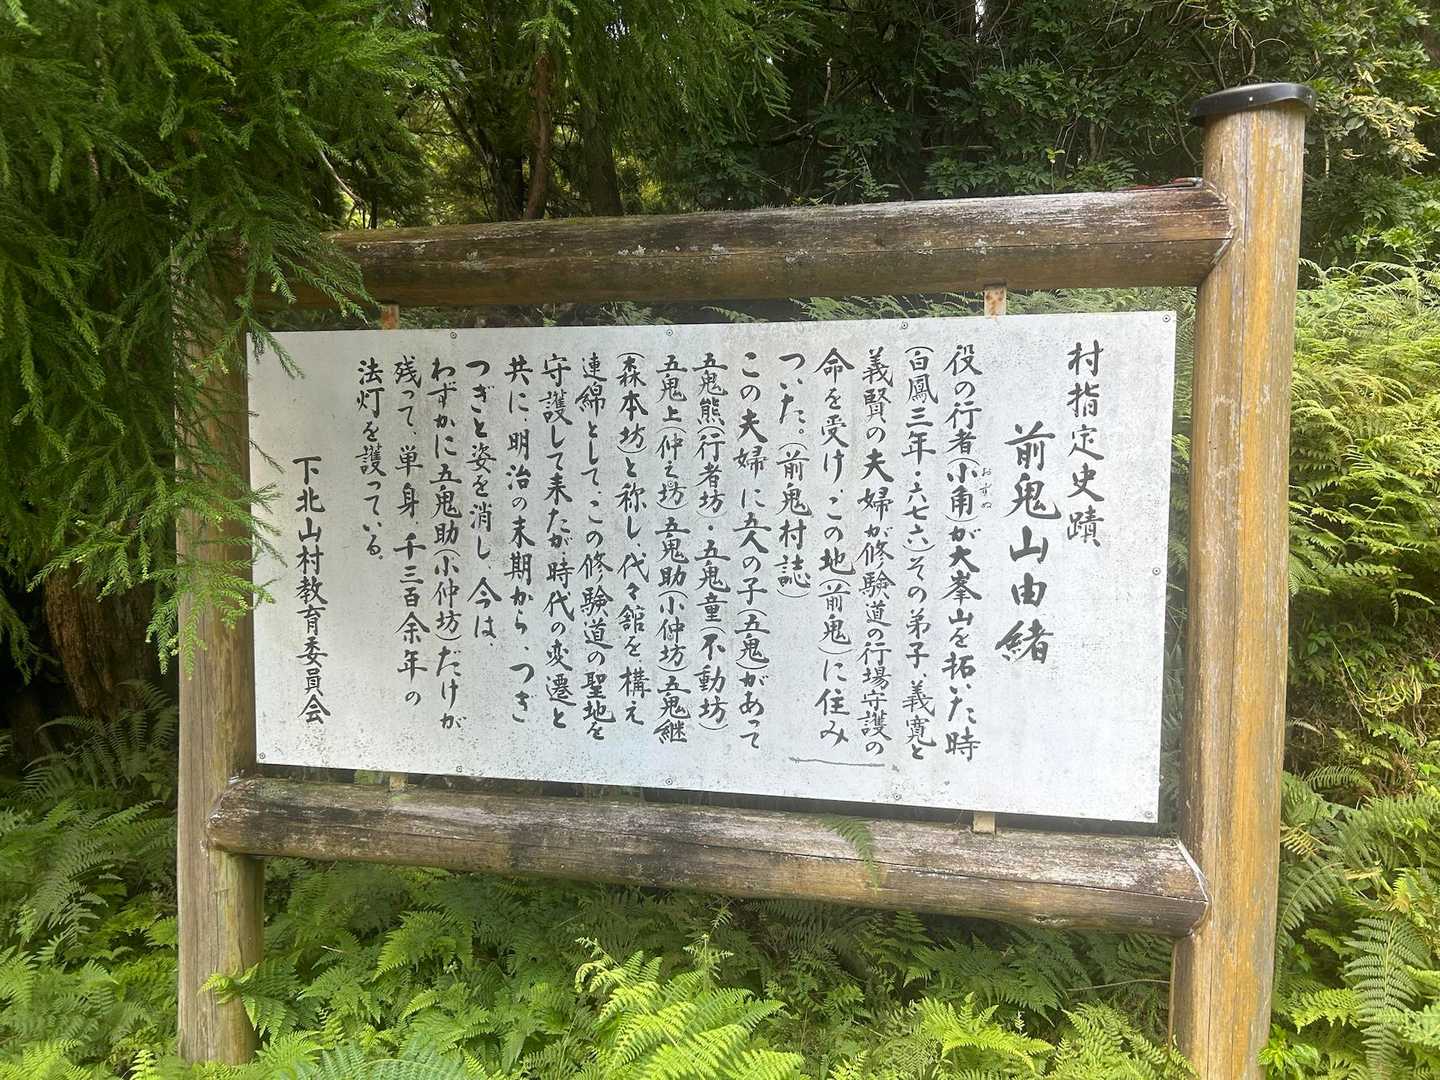 村指定史蹟
前鬼山由緒
役の行者(小角)が大峯山を拓いた時
おずぬ
(白鳳三年・六七六)その弟子、義寛と
義賢の夫婦が修験道の行場守護の
命を受け、この地(前鬼)に住み
ついた。(前鬼村誌)
この夫婦に五人の子(五鬼)があって
五鬼熊(行者坊・五鬼童(不動坊)
五鬼上(仲之坊)五鬼助(小仲坊)五鬼継
(森本坊)と称し、代々舘を構え
連綿として、この修験道の聖地を
守護して来たが、時代の変遷と
共に、明治の末期から、つぎ
つぎと姿を消し、今は、
わずかに五鬼助(小仲坊)だけが
残って、単身、千三百余年の
法灯を護っている。
下北山村教育委員会